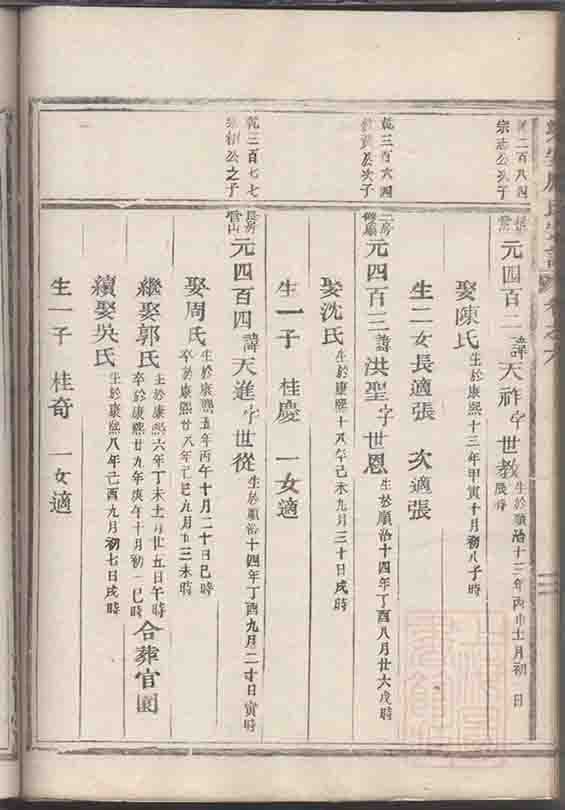 卷之六
二百八四
宗志公次子
元四百二 諱天祚字世教 生於順治十三年丙申十月初 日 辰時
娶陳氏 生於康熙十三年甲寅十月初八子時
生二女長適張 次適張
乾三百六四
公次子
二房
元四百三 諱洪聖字世恩 生於順治十四年丁酉八月廿六戌時
娶沈氏 生於康熙十八年己未九月三十日戌時
生一子 桂慶 一女適
乾三百七七
公之子
長房官山
元四百四 諱天進字世從 生於順治十四年丁酉九月二十日寅時
娶周氏 生於康熙五年丙午十月二十日巳時
卒於康熙廿八年己巳九月十三未時
繼娶郭氏 生於康熙六年丁未十月廿五日午時
卒於康熙廿九年庚午十月初一巳時
合葬官園
續娶吳氏 生於康熙八年己酉九月初七日戌時
生一子 桂奇 一女適